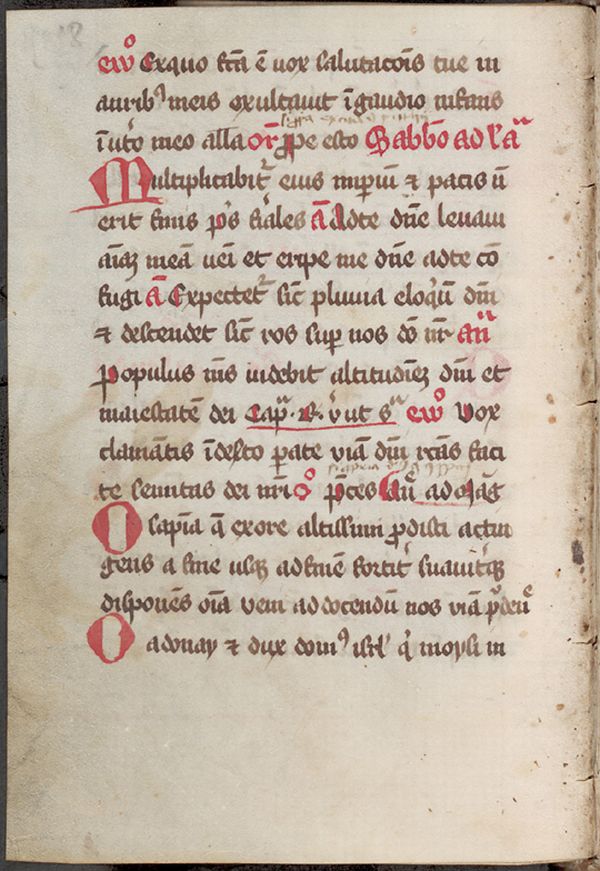 ewō Ex quo fc̄a ē vox salutacōis tue in
aurib⁹ meis exultavit ī gaudio infans
ī ut͛o meo alla or̄ ꝓpe esto Sabbō ad la
Multiplicabit͛ eius imperiū et pacis n̄
erit finis p̄s fi͛ales ā Ad te dn̄e levavi
aīaꝫ meā veni et eripe me dn̄e ad te cō
fugi ā Expectet͛ sic̄ pluvia eloqū dn̄i
et descendet sic̄ ros sup nos dō nr̄ añ
Populus m̄s videbit altitudinēꝫ dn̄i et
maiestatē dei Cap̄ . R . v͛ ut sᵃ ewō Vox
clamātis ī des͛to parate viā dn̄i rc̄as faci
te semitas dei nr̄i o p̄ces añ ad maḡ
O sapīa q̄ ex ore altissimi ꝓdisti actin
gens a fine usqꝫ ad finē fortit͛ suavit͛qꝫ
disponēs oīa veni ad docendū nos viā p̄den͛
O adonay et dux dom⁹ isrl' q̄ moysi in